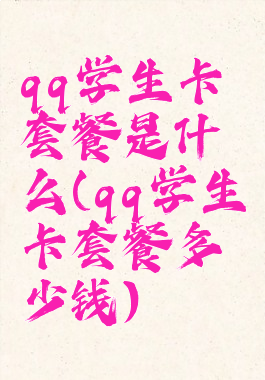 qq学生卡
套餐是什
么(qq学生
卡套餐多
少钱)